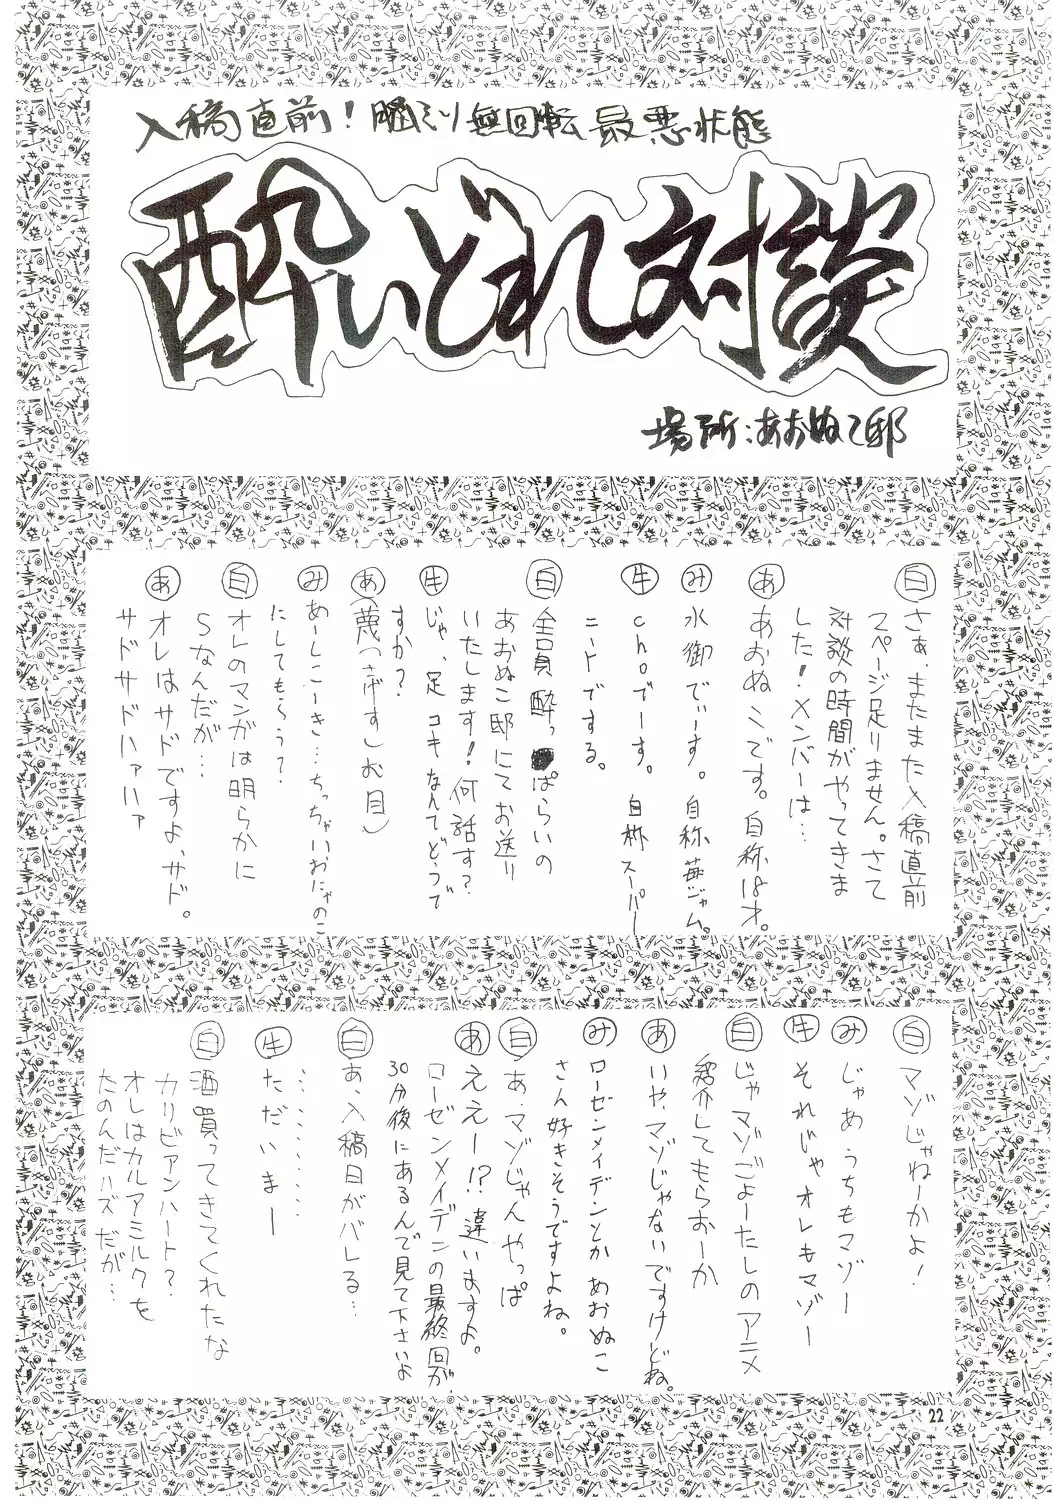 入稿直前！脳ミソ無回転 最悪状態
酔いどれ対談
場所：あおぬこ邸
白
さぁ、またまた入稿直前
スペース足りません。さて
対談の時間がやってきま
した！メンバーは…
あ
あおぬこです。自称18才。
み
水御でぃーす。自称苺ジャム。
牛
choでーす。自称スーパー
ニートでする。
白
全員酔っぱらいの
あおぬこ邸にてお送り
いたします！何話す？
牛
じゃ、足コキなんてどうで
すか？
あ
（蔑っさげすむ目）
み
めしこーき…ちっちゃいおにゃのこ
にしてもらう？
白
オレのマンガは明らかに
Sなんだが…
あ
オレはサドですよ、サド。
サドサドハァハァ
白
マゾじゃねーかよ！
み
じゃあうちもマゾー
牛
それじゃオレもマゾー
白
じゃマゾごよーたしのアニメ
紹介してもらおーか
あ
いや、マゾじゃないですけどね。
み
ローゼンメイデンとかあおぬこ
さん好きそうですよね。
白
あ、マゾじゃんやっぱ
あ
ええー!?違いますよ。
ローゼンメイデンの最終回が
30分後にあるんで見て下さいよ
白
あ、入稿日がバレる…
…………
牛
ただいまー
白
酒買ってきてくれたな
カリビアンハート？
オレはカルアミルクを
たのんだハズだが…
22